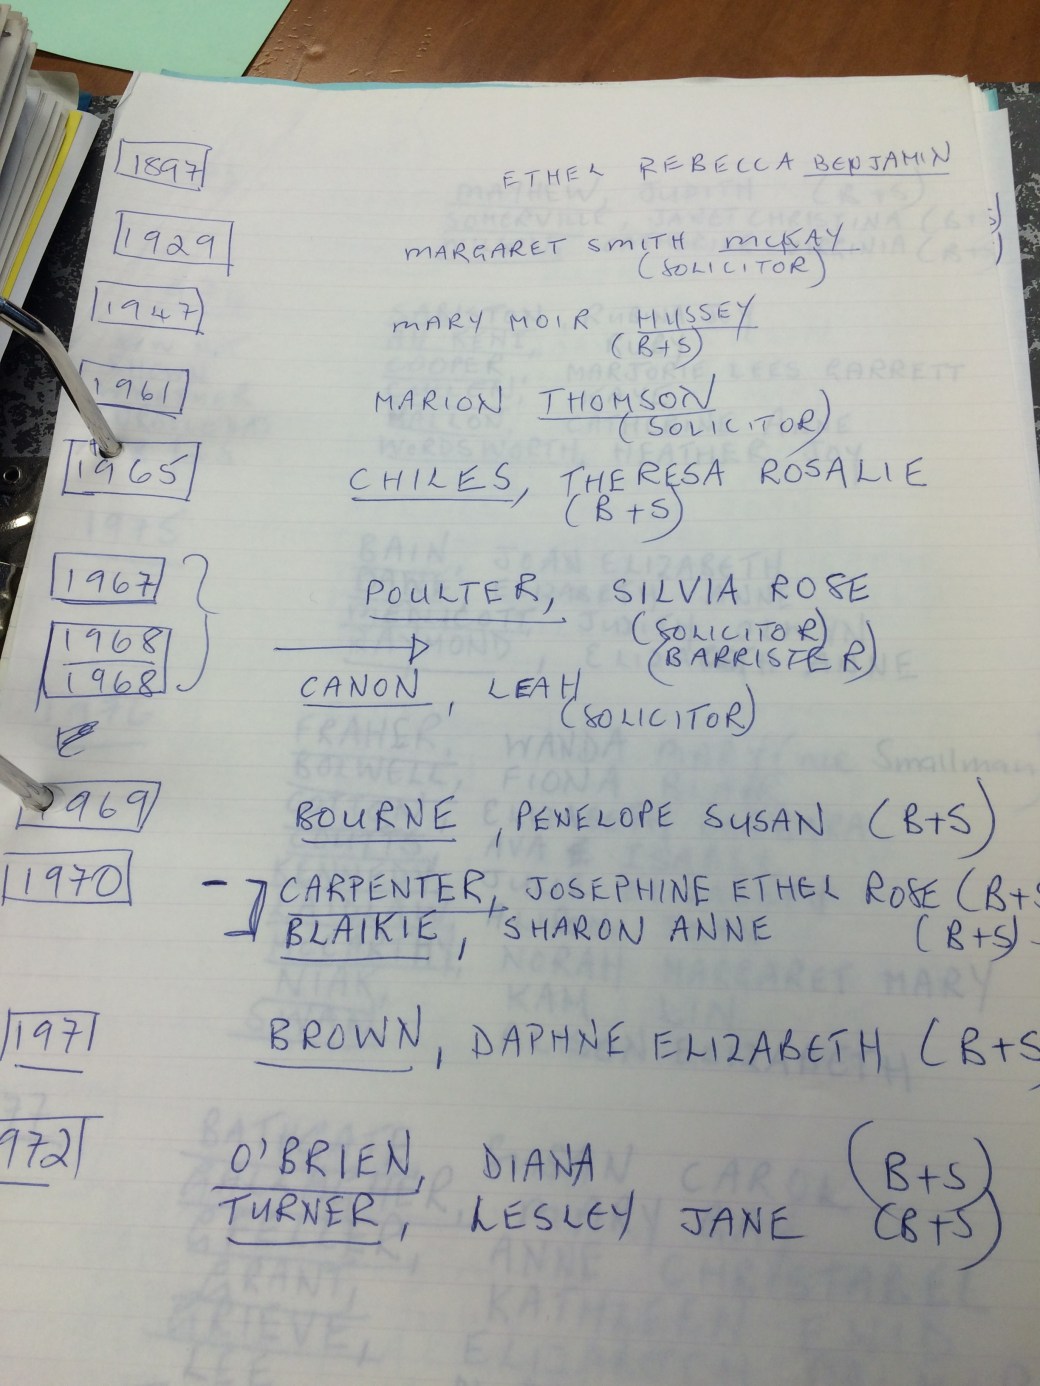 1897 ETHEL REBECCA BENJAMIN
1929 MARGARET SMITH MCKAY
(SOLICITOR)
1947 MARY MOIR HUSSEY
(B+S)
1961 MARION THOMSON
(SOLICITOR)
1965 CHILES, THERESA ROSALIE
(B+S)
1967 POULTER, SILVIA ROSE
(SOLICITOR)
1968 (BARRISTER)
1968 CANON, LEAH
(SOLICITOR)
1969 BOURNE, PENELOPE SUSAN (B+S)
1970 CARPENTER, JOSEPHINE ETHEL ROSE (B+S
BLAIKIE, SHARON ANNE (B+S)
1971 BROWN, DAPHNE ELIZABETH (B+S
972 O'BRIEN, DIANA (B+S)
TURNER, LESLEY JANE (B+S)